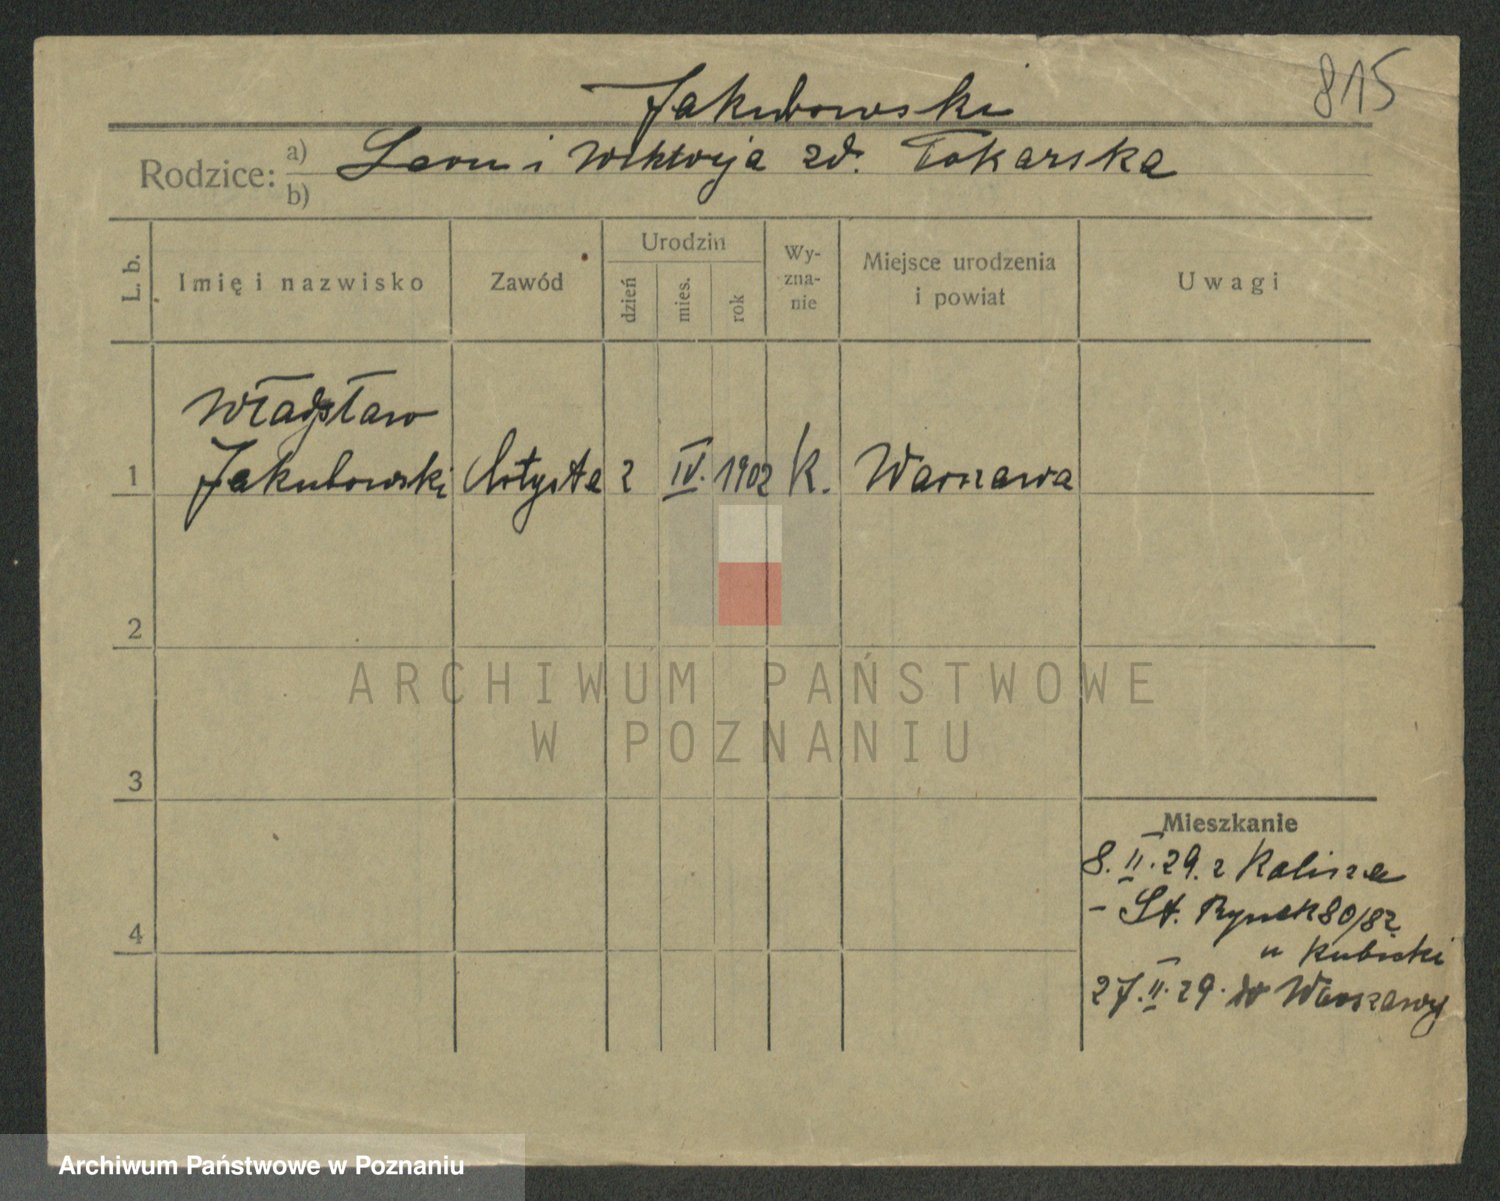 815
Jakubowski
Rodzice: a) b) Leon i Wiktorja zd. Tokarska
L. b. Imię i nazwisko Zawód Urodzin dzień mies. rok Wy-zna-nie Miejsce urodzenia i powiat Uwagi
Władysław
1 Jakubowski 2 IV. 1902 k. Warszawa
2
3
4
Mieszkanie
8. II. 29. z Kalisza
- St. Rynek 80/82
u Kubicki
27. II. 29. do Warszawy
ARCHIWUM PAŃSTWOWE
W POZNANIU
Archiwum Państwowe w Poznaniu